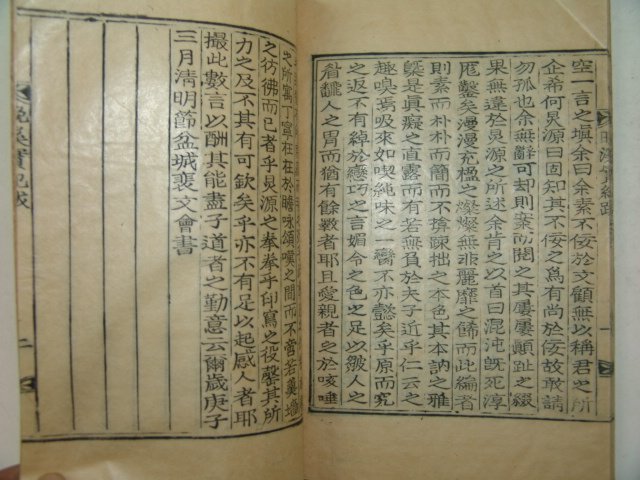 空一言之塡余曰余素不佞於文顧無以稱君之所
企希何炅源曰固知其不佞之爲有尚於佞故敢請
勿孤也余無辭可却則案而閱之其屢屢顚趾之綴
果無違於炅源之所述余肯之以首曰混沌旣死淳
厖鑿矣漫漫充楹之燦燦無非麗靡之篩而此編者
則素而朴朴而簡而不揜疎拙之本色其本訥之雅
槩是眞癡之直露而有若無負於夫子近乎仁云之
趣嗅焉吸來如喫純味之一臠不亦懿矣乎原而究
之返不有綽於巒巧之言媚令之色之足以皺人之
眉
人之胃而猶有餘數者耶且愛親者之於咳唾
之所寓丁寧在在於瞻咏頌嘆之間而不啻若羹墻
之彷彿而已者乎炅源之拳拳乎印寫之役罄其所
力之及不其有可欽矣乎亦不有足以起感人者耶
撮此數言以酬其能盡子道者之勤意云爾歲庚子
三月淸明節盆城裵文會書
實紀跋
二
實紀跋
一